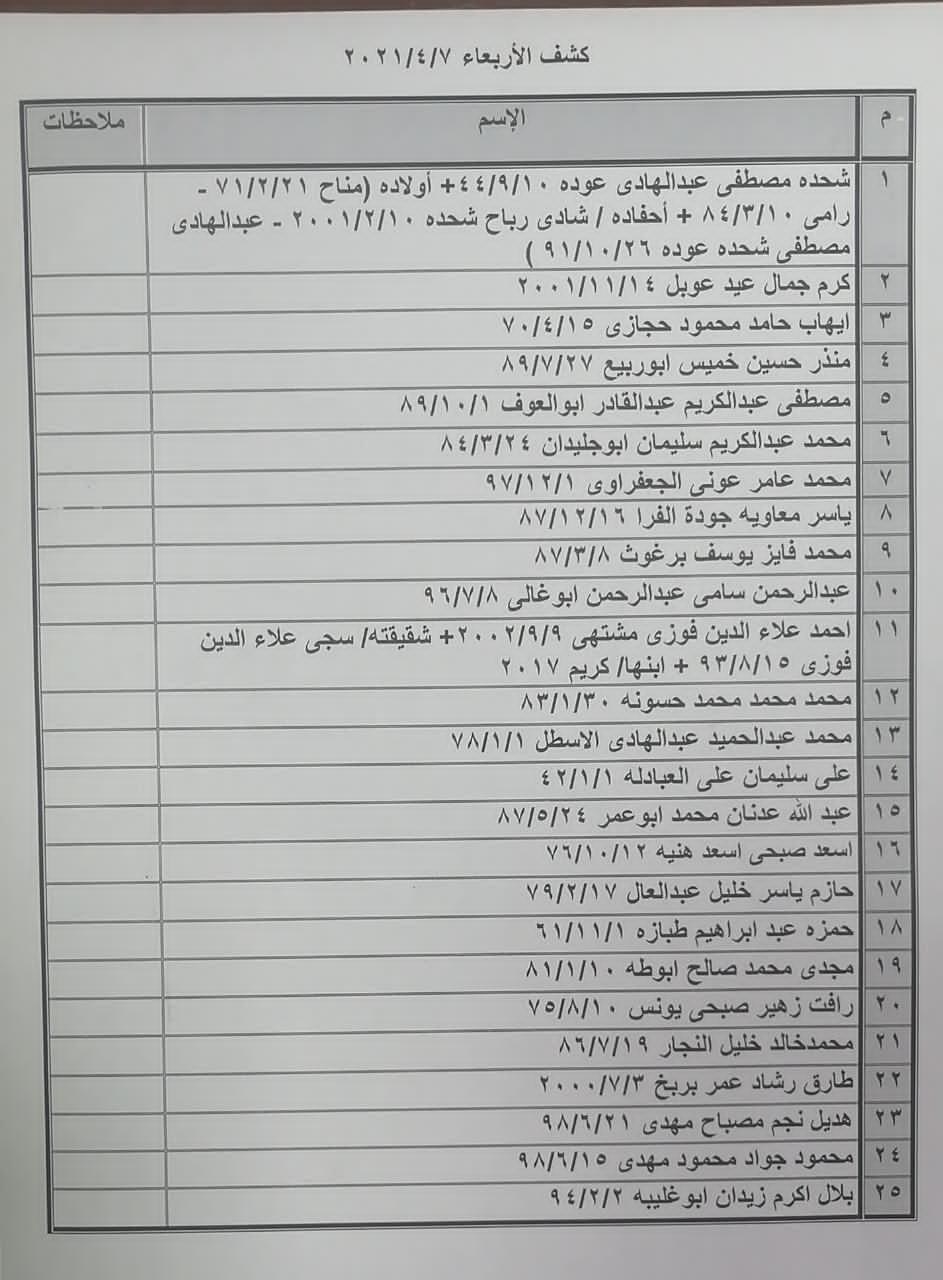 كشف الأربعاء ٢٠٢١/٤/٧
م الإسم ملاحظات
١ شحده مصطفى عبدالهادى عوده ٤٤/٩/١٠+ أولاده (مناح ٧١/٢/٢١ -
رامى ٨٤/٣/١٠ + أحفاده / شادى رباح شحده ٢٠٠١/٢/١٠ - عبدالهادى
مصطفى شحده عوده ٩١/١٠/٢٦ )
٢ كرم جمال عيد عوبل ٢٠٠١/١١/١٤
٣ ايهاب حامد محمود حجازى ٧٠/٤/١٥
٤ منذر حسين خميس ابوربيع ٨٩/٧/٢٧
٥ مصطفى عبدالكريم عبدالقادر ابوالعوف ٨٩/١٠/١
٦ محمد عبدالكريم سليمان ابوجليدان ٨٤/٣/٢٤
٧ محمد عامر عونى الجعفراوى ٩٧/١٢/١
٨ ياسر معاويه جودة الفرا ٨٧/١٢/١٦
٩ محمد فايز يوسف برغوث ٨٧/٣/٨
١٠ عبدالرحمن سامى عبدالرحمن ابوغالى ٩٦/٧/٨
١١ احمد علاء الدين فوزى مشتهى ٢٠٠٢/٩/٩+ شقيقته/ سجى علاء الدين
فوزى ٩٣/٨/١٥ + ابنها/ كريم ٢٠١٧
١٢ محمد محمد محمد حسونه ٨٣/١/٣٠
١٣ محمد عبدالحميد عبدالهادى الاسطل ٧٨/١/١
١٤ على سليمان على العبادله ٤٢/١/١
١٥ عبد الله عدنان محمد ابوعمر ٨٧/٥/٢٤
١٦ اسعد صبحى اسعد هنيه ٧٦/١٠/١٢
١٧ حازم ياسر خليل عبدالعال ٧٩/٢/١٧
١٨ حمزه عبد ابراهيم طبازه ٦١/١١/١
١٩ مجدى محمد صالح ابوطه ٨١/١/١٠
٢٠ رافت زهير صبحى يونس ٧٥/٨/١٠
٢١ محمدخالد خليل النجار ٨٦/٧/١٩
٢٢ طارق رشاد عمر بربخ ٢٠٠٠/٧/٣
٢٣ هديل نجم مصباح مهدى ٩٨/٦/٢١
٢٤ محمود جواد محمود مهدى ٩٨/٦/١٥
٢٥ بلال اكرم زيدان ابوغليبه ٩٤/٢/٢